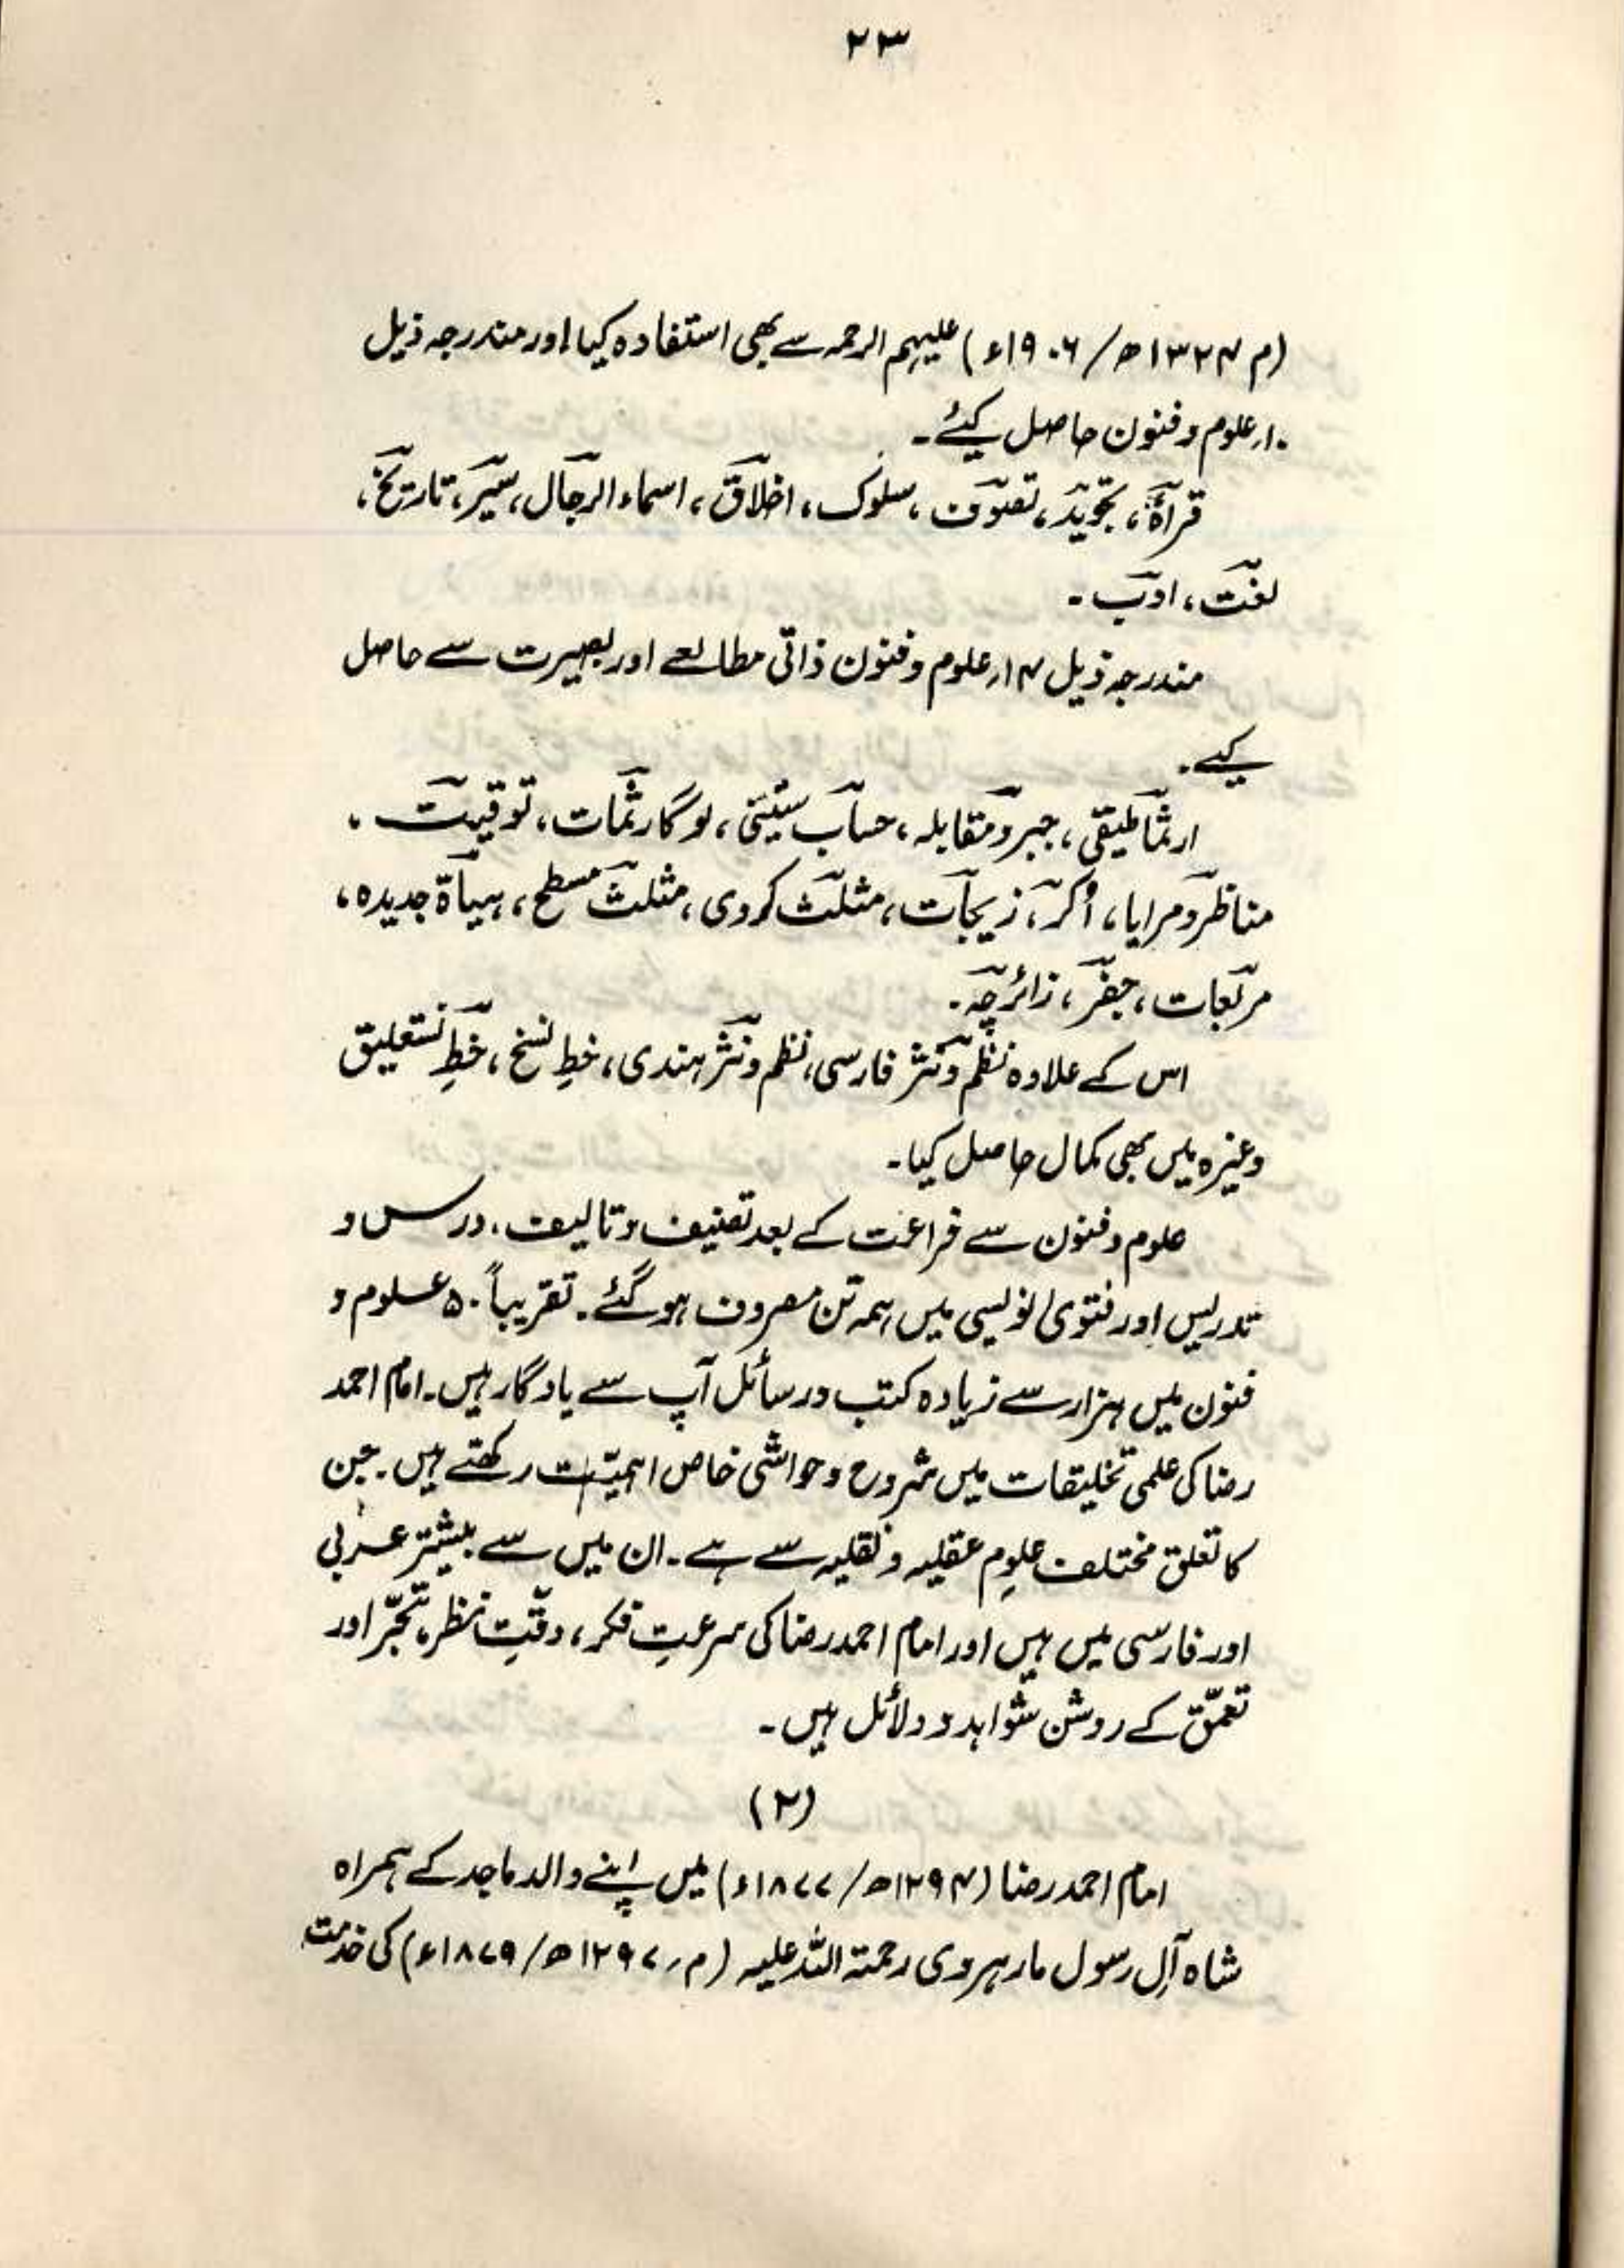 ۲۳
(م ۱۳۲۴ھ/۱۹۰۶ء) علیہم الرحمہ سے بھی استفادہ کیا اور مندرجہ ذیل
۱۰؍علوم و فنون حاصل کیئے۔
قرأۃ، تجوید، تصوف، سلوک، اخلاق، اسماء الرجال، سیر، تاریخ،
لغت، ادب۔
مندرجہ ذیل ۱۴؍علوم و فنون ذاتی مطالعے اور بصیرت سے حاصل
کیے۔
ارثماطیقی، جبر و مقابلہ، حساب ستینی، لوگارثمات، توقیت،
مناظر و مرایا، اُکر، زیجات، مثلث کروی، مثلث مسطح، ہیأۃ جدیدہ،
مربعات، جفر، زائرچہ۔
اس کے علاوہ نظم و نثر فارسی، نظم و نثر ہندی، خطِ نسخ، خطِ نستعلیق
وغیرہ میں بھی کمال حاصل کیا۔
علوم و فنون سے فراغت کے بعد تصنیف و تالیف، درس و
تدریس اور فتویٰ نویسی میں ہمہ تن مصروف ہو گئے۔ تقریباً ۵۰ علوم و
فنون میں ہزار سے زیادہ کتب و رسائل آپ سے یادگار ہیں۔ امام احمد
رضا کی علمی تخلیقات میں شروح و حواشی خاص اہمیّت رکھتے ہیں۔ جن
کا تعلق مختلف علومِ عقلیہ و نقلیہ سے ہے۔ ان میں سے بیشتر عربی
اور فارسی میں ہیں اور امام احمد رضا کی سرعتِ فکر، دقّتِ نظر، تبحّر اور
تعمّق کے روشن شواہد و دلائل ہیں۔
(۲)
امام احمد رضا (۱۲۹۴ھ/۱۸۷۷ء) میں اپنے والد ماجد کے ہمراہ
شاہ آلِ رسول مارہروی رحمتہ اللہ علیہ (م؍ ۱۲۹۷ھ/۱۸۷۹ء) کی خدمت